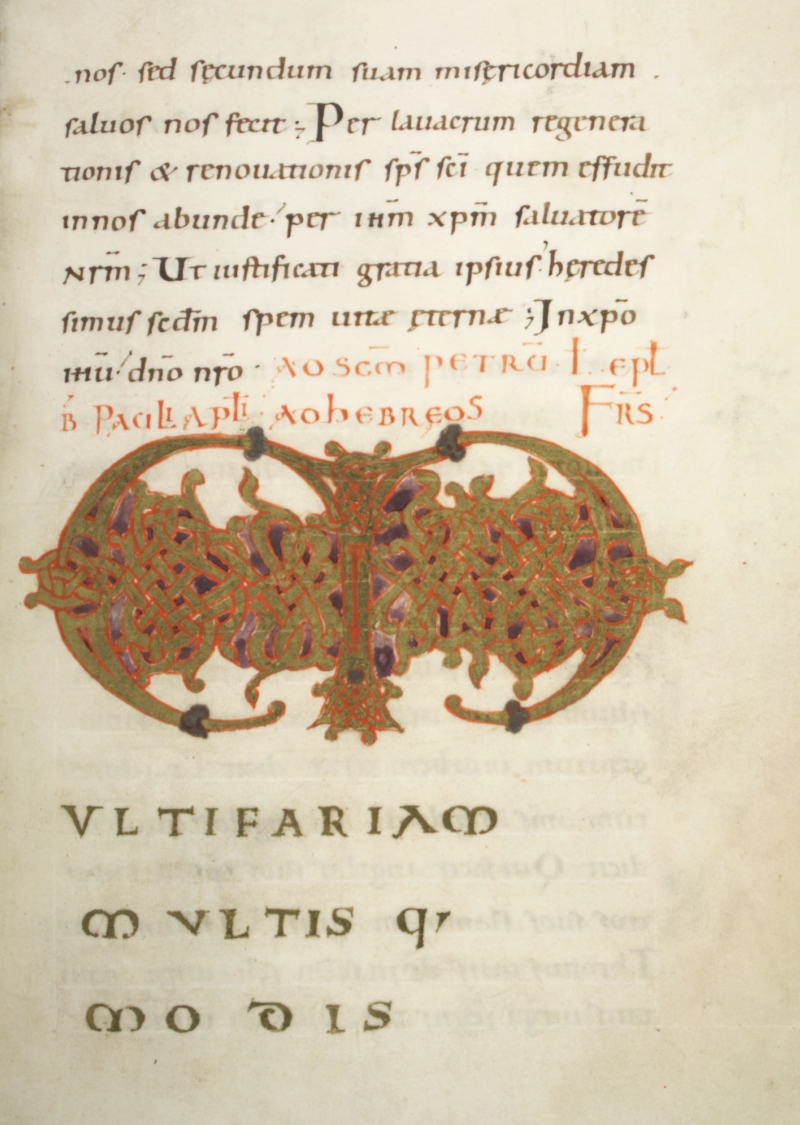 nos· sed secundum suam misęricordiam .
saluos nos fecit ; Per lauacrum regenera
tionis & renouationis sp̄s sc̄i quem effudit
in nos abunde· per ihm̄ xpm̄ saluatorē
nrm̄ ; Ut iustificati gratia ipsius heredes
simus secdm̄ spem uitæ ęternæ ; In xp̄o
ihū· dn̄o nr̄o · AD SCM̄ PETRŪ L epł
B PAULI APłI AD hEBREOS FRS
M
VLTIFARIAM
MVLTIS q
MODIS